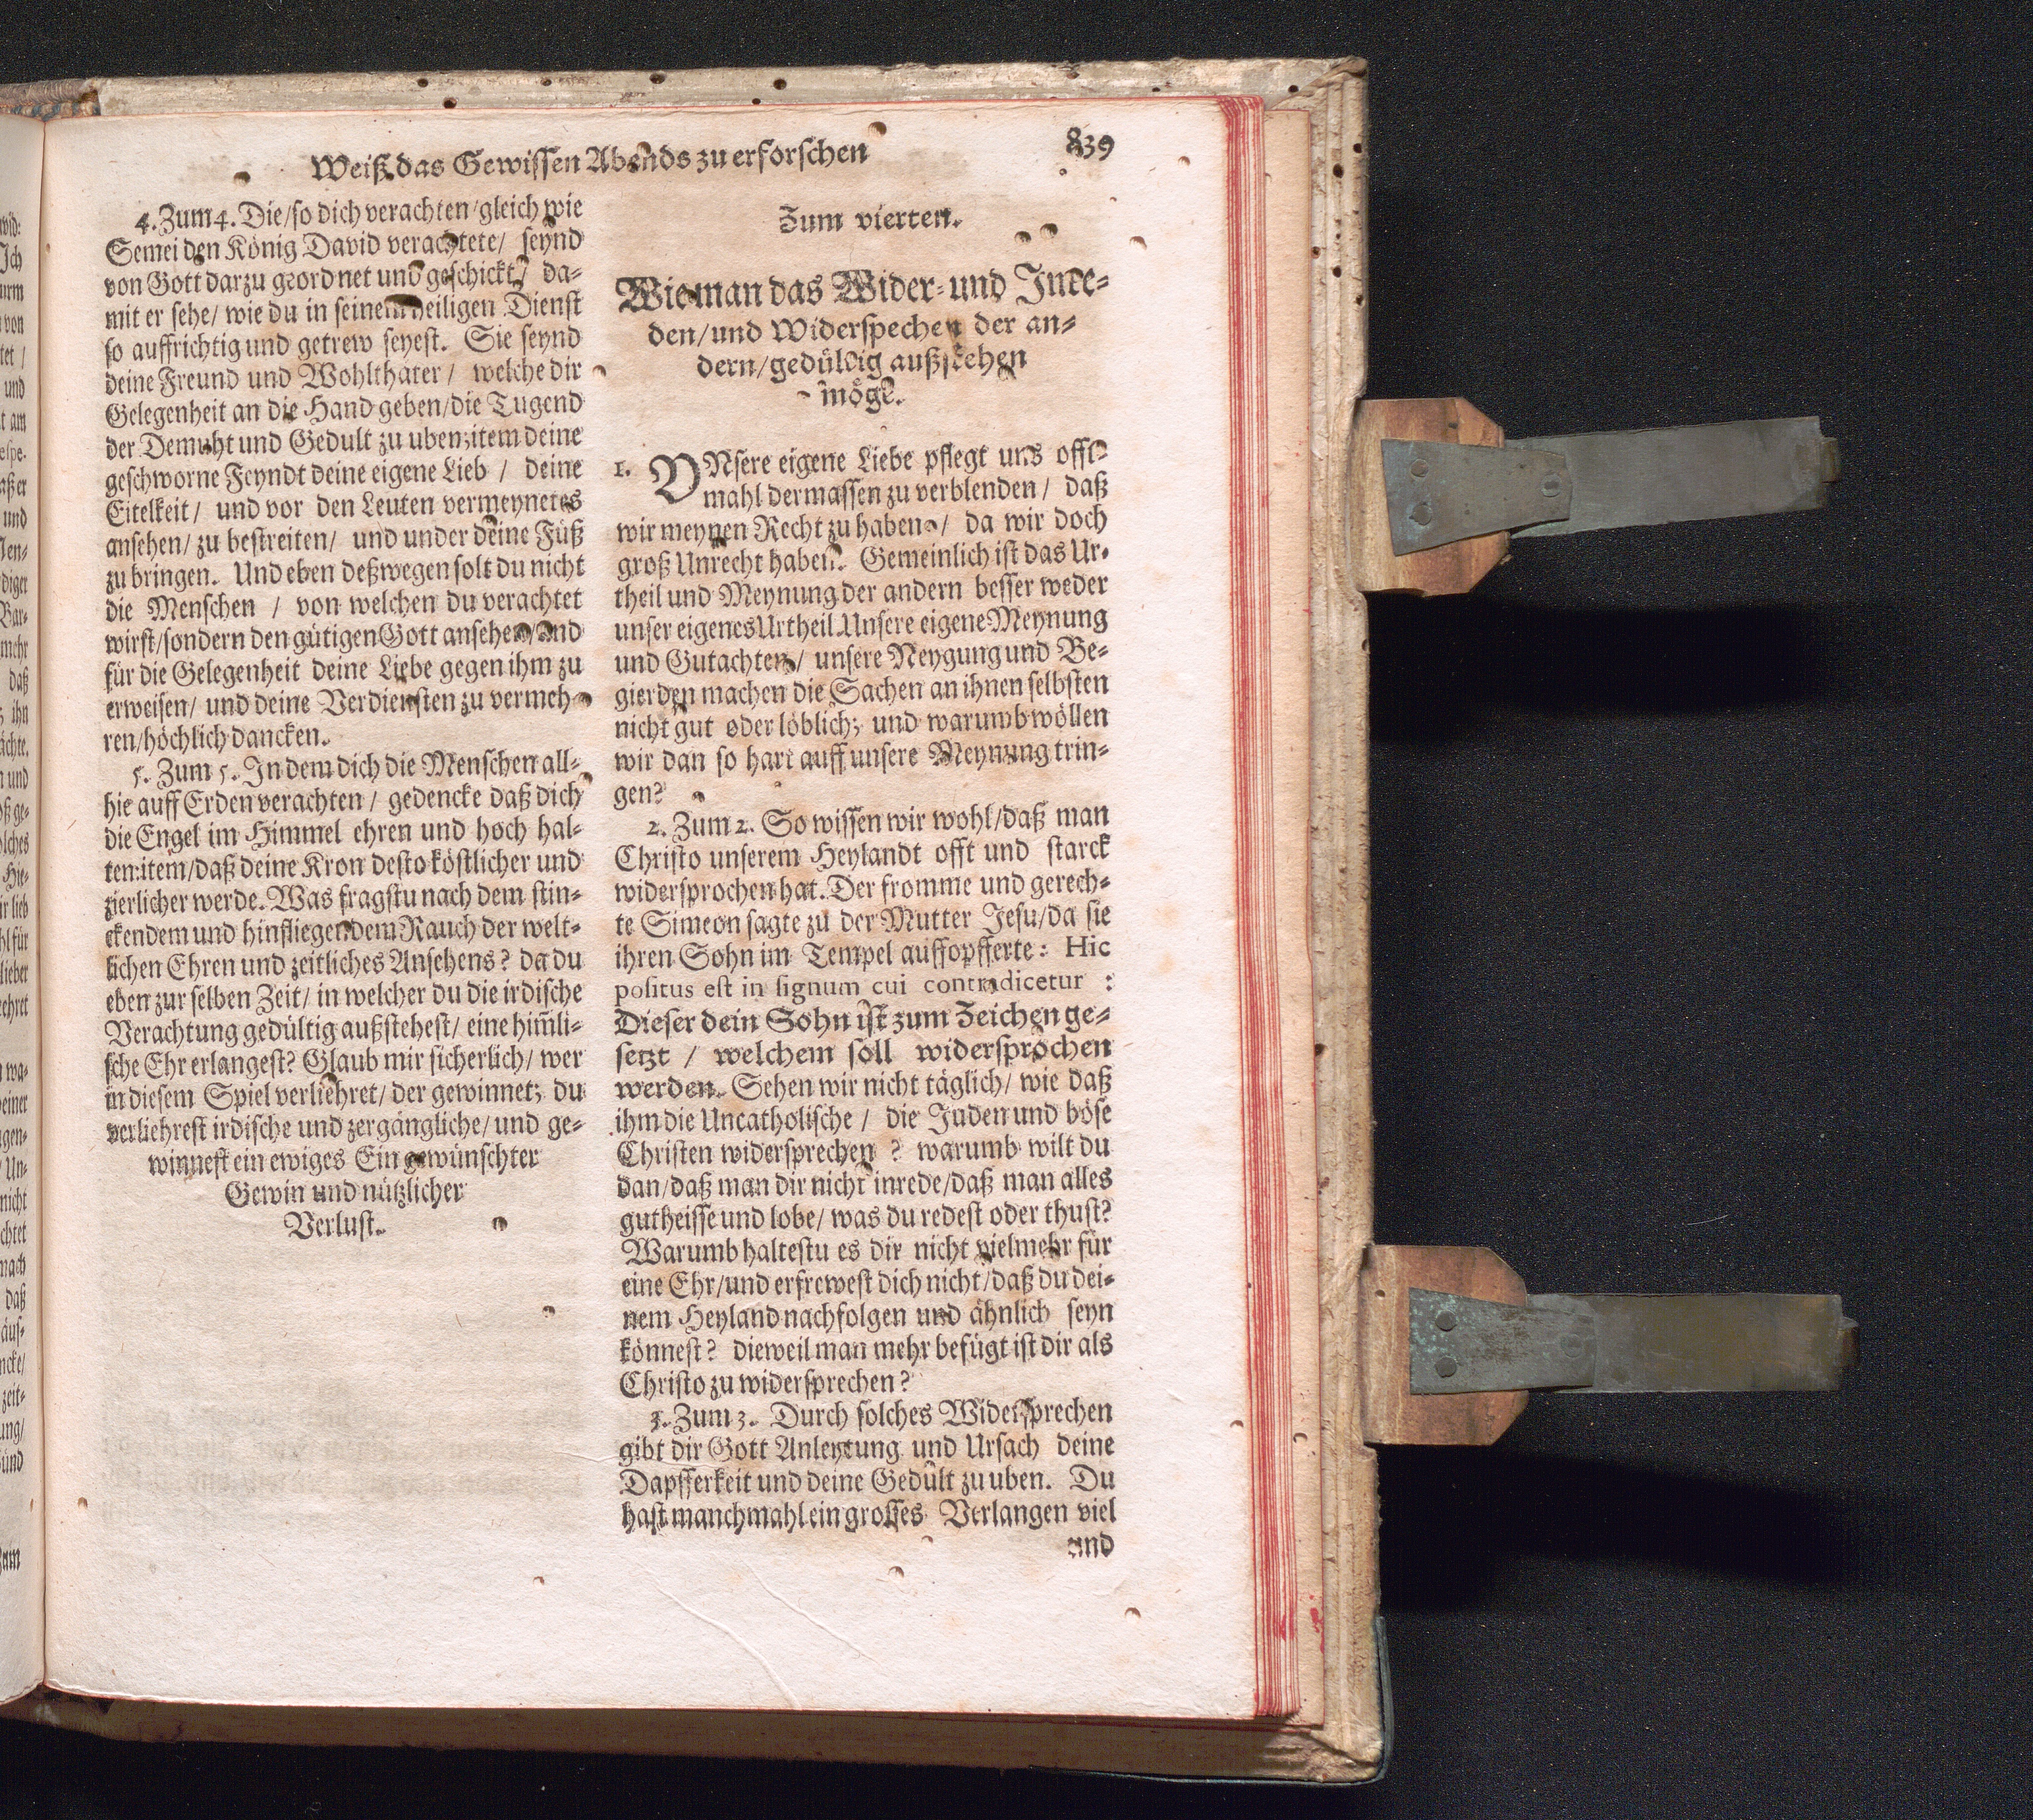 Weiß das Gewissen Abends zu erforschen
839
4. Zum 4. Die/so dich verachten/gleich wie
Semei den König David verachtete/ seynd
von Gott darzu geordnet und geschickt/ da-
mit er sehe/ wie du in seinem heiligen Dienst
so auffrichtig und getrew seyest. Sie seynd
deine Freund und Wohlthater/ welche dir
Gelegenheit an die Hand geben/die Tugend
der Demuht und Gedult zu uben; item deine
geschworne Feyndt deine eigene Lieb / deine
Eitelkeit/ und vor den Leuten vermeynetes
ansehen/ zu bestreiten/ und under deine Füß
zu bringen. Und eben deßwegen solt du nicht
die Menschen / von welchen du verachtet
wirst/sondern den gütigen Gott ansehen/und
für die Gelegenheit deine Liebe gegen ihm zu
erweisen/ und deine Verdiensten zu vermeh-
ren/höchlich dancken.
5. Zum 5. In dem dich die Menschen all-
hie auff Erden verachten / gedencke daß dich
die Engel im Himmel ehren und hoch hal-
ten: item/daß deine Kron desto köstlicher und
zierlicher werde. Was fragstu nach dem stin-
ckendem und hinfliegendem Rauch der welt-
lichen Ehren und zeitliches Ansehens? da du
eben zur selben Zeit/ in welcher du die irdische
Verachtung gedültig außstehest/ eine him̃li-
sche Ehr erlangest? Glaub mir sicherlich/ wer
in diesem Spiel verliehret/ der gewinnet; du
verliehrest irdische und zergängliche/ und ge-
winnest ein ewiges Ein gewünschter
Gewin und nützlicher
Verlust.
Zum vierten.
Wie man das Wider- und Inre-
den/und Widerspechen der an-
dern/gedültig außstehen
möge.
1. VNsere eigene Liebe pflegt uns offt-
mahl dermassen zu verblenden/ daß
wir meynen Recht zu haben/ da wir doch
groß Unrecht haben. Gemeinlich ist das Ur-
theil und Meynung der andern besser weder
unser eigenes Urtheil. Unsere eigene Meynung
und Gutachten/ unsere Neygung und Be-
gierden machen die Sachen an ihnen selbsten
nicht gut oder löblich; und warumb wöllen
wir dan so hart auff unsere Meynung trin-
gen?
2. Zum 2. So wissen wir wohl/daß man
Christo unserem Heylandt offt und starck
widersprochen hat. Der fromme und gerech-
te Simeon sagte zu der Mutter Jesu/da sie
ihren Sohn im Tempel auffopfferte: Hic
positus est in signum cui contradicetur :
Dieser dein Sohn ist zum Zeichen ge-
setzt / welchem soll widersprochen
werden. Sehen wir nicht täglich/ wie daß
ihm die Uncatholische / die Juden und böse
Christen widersprechen ? warumb wilt du
dan/daß man dir nicht inrede/daß man alles
gutheisse und lobe/ was du redest oder thust?
Warumb haltestu es dir nicht vielmehr für
eine Ehr/und erfrewest dich nicht/daß du dei-
nem Heyland nachfolgen und ähnlich seyn
könnest? dieweil man mehr befügt ist dir als
Christo zu widersprechen?
3. Zum 3. Durch solches Widersprechen
gibt dir Gott Anleytung und Ursach deine
Dapfferkeit und deine Gedült zu uben. Du
hast manchmahl ein grosses Verlangen viel
und